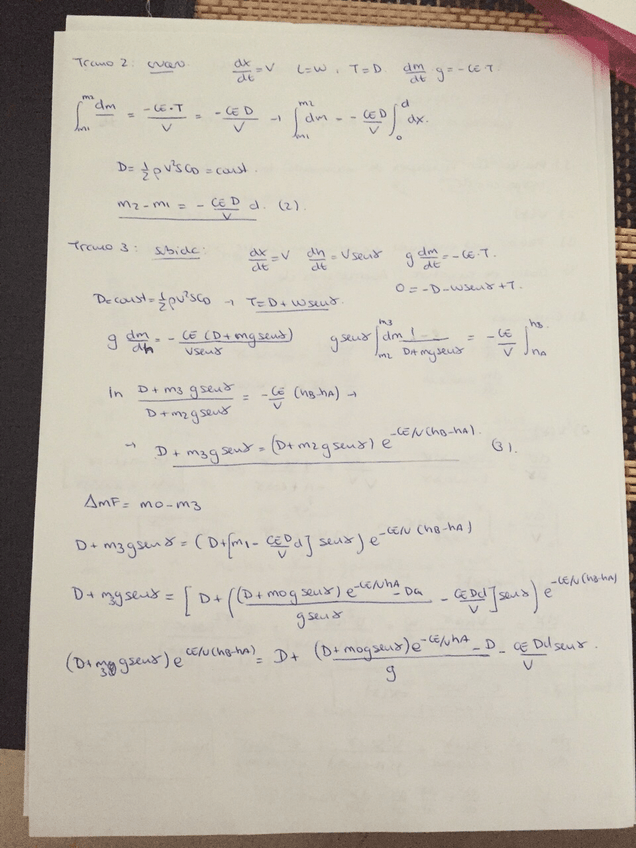 Tramo 2: dx/dt = V L=W, T=D. dm/dt g = -CE T.
∫_{m1}^{m2} dm/dx = -CE·T/V = -CE D/V → ∫_{m1}^{m2} dm = -CE D/V ∫_0^d dx.
D = 1/2 ρV²S CD = const.
m2-m1 = -CE D/V d. (2).
Tramo 3: subida: dx/dt = V dh/dt = V senγ g dm/dt = -CE·T.
D=const = 1/2 ρV²S CD → T = D + W senγ. 0 = -D - W senγ + T.
g dm/dh = -CE (D+mg senγ)/V senγ g senγ ∫_{m2}^{m3} dm 1/D+mg senγ = -CE/V ∫_{hA}^{hB}
ln D+m3 g senγ/D+m2 g senγ = -CE/V (hB-hA) →
→ D+m3 g senγ = (D+m2 g senγ) e^{-CE/V (hB-hA)}. (3).
ΔmF = m0-m3
D+m3 g senγ = (D+[m1 - CE D/V d] senγ) e^{-CE/V (hB-hA)}
D+m3 g senγ = [D+((D+m0 g senγ) e^{-CE/V hA} - Da/g senγ - CE Dd/V] senγ) e^{-CE/V (hB-hA)}
(D+m3 g senγ) e^{CE/V (hB-hA)} = D + (D+m0 g senγ) e^{-CE/V hA} - D/g - CE Dd senγ/V.